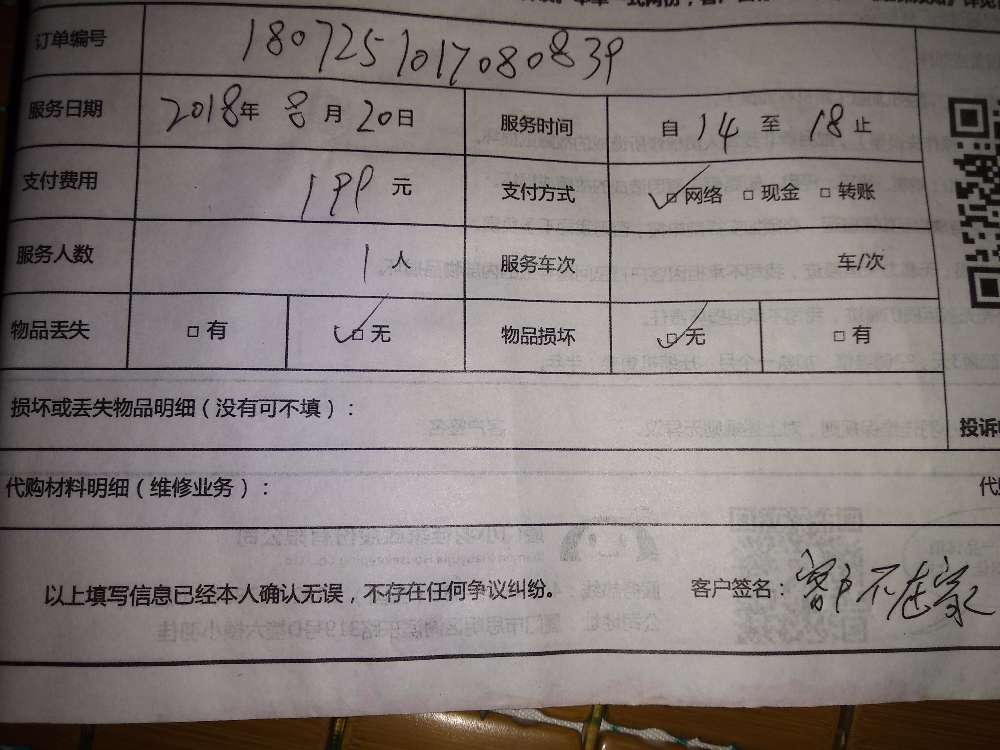 订单编号 1807251017080839
服务日期 2018年 8月 20日 服务时间 自 14 至 18 止
支付费用 199 元 支付方式 ☑网络 □现金 □转账
服务人数 1 人 服务车次 车/次
物品丢失 □有 ☑无 物品损坏 ☑无 □有
损坏或丢失物品明细(没有可不填):
投诉
代购材料明细(维修业务):
以上填写信息已经本人确认无误,不存在任何争议纠纷。 客户签名:客户不在家